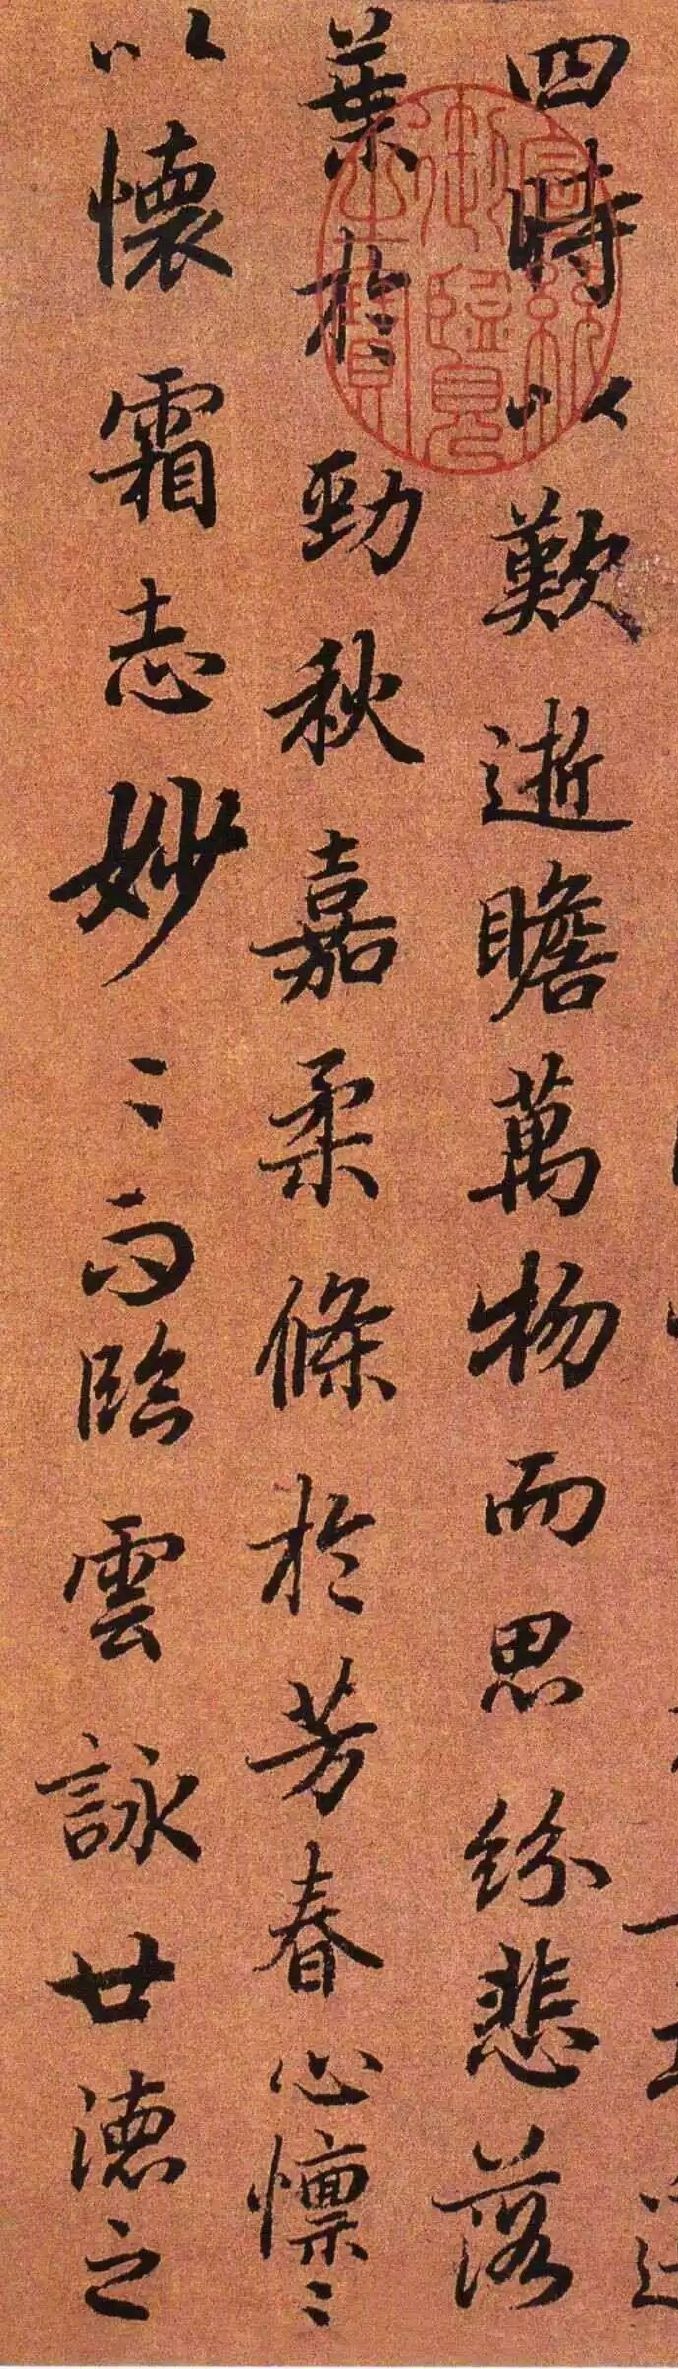 四時以歎逝瞻萬物而思紛悲落
葉於勁秋嘉柔條於芳春心懍〻
以懷霜志妙〻而臨雲詠世德之
宣統
御覽
之寶